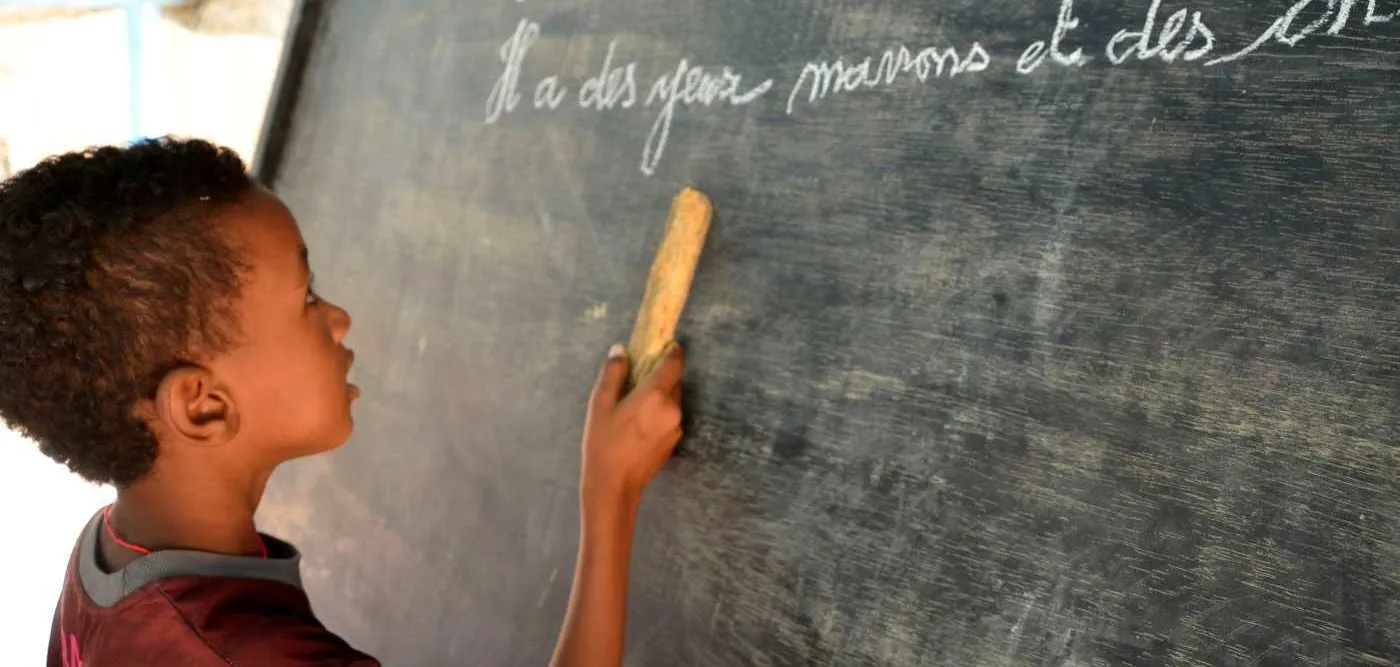 Il a des yeux marrons et des